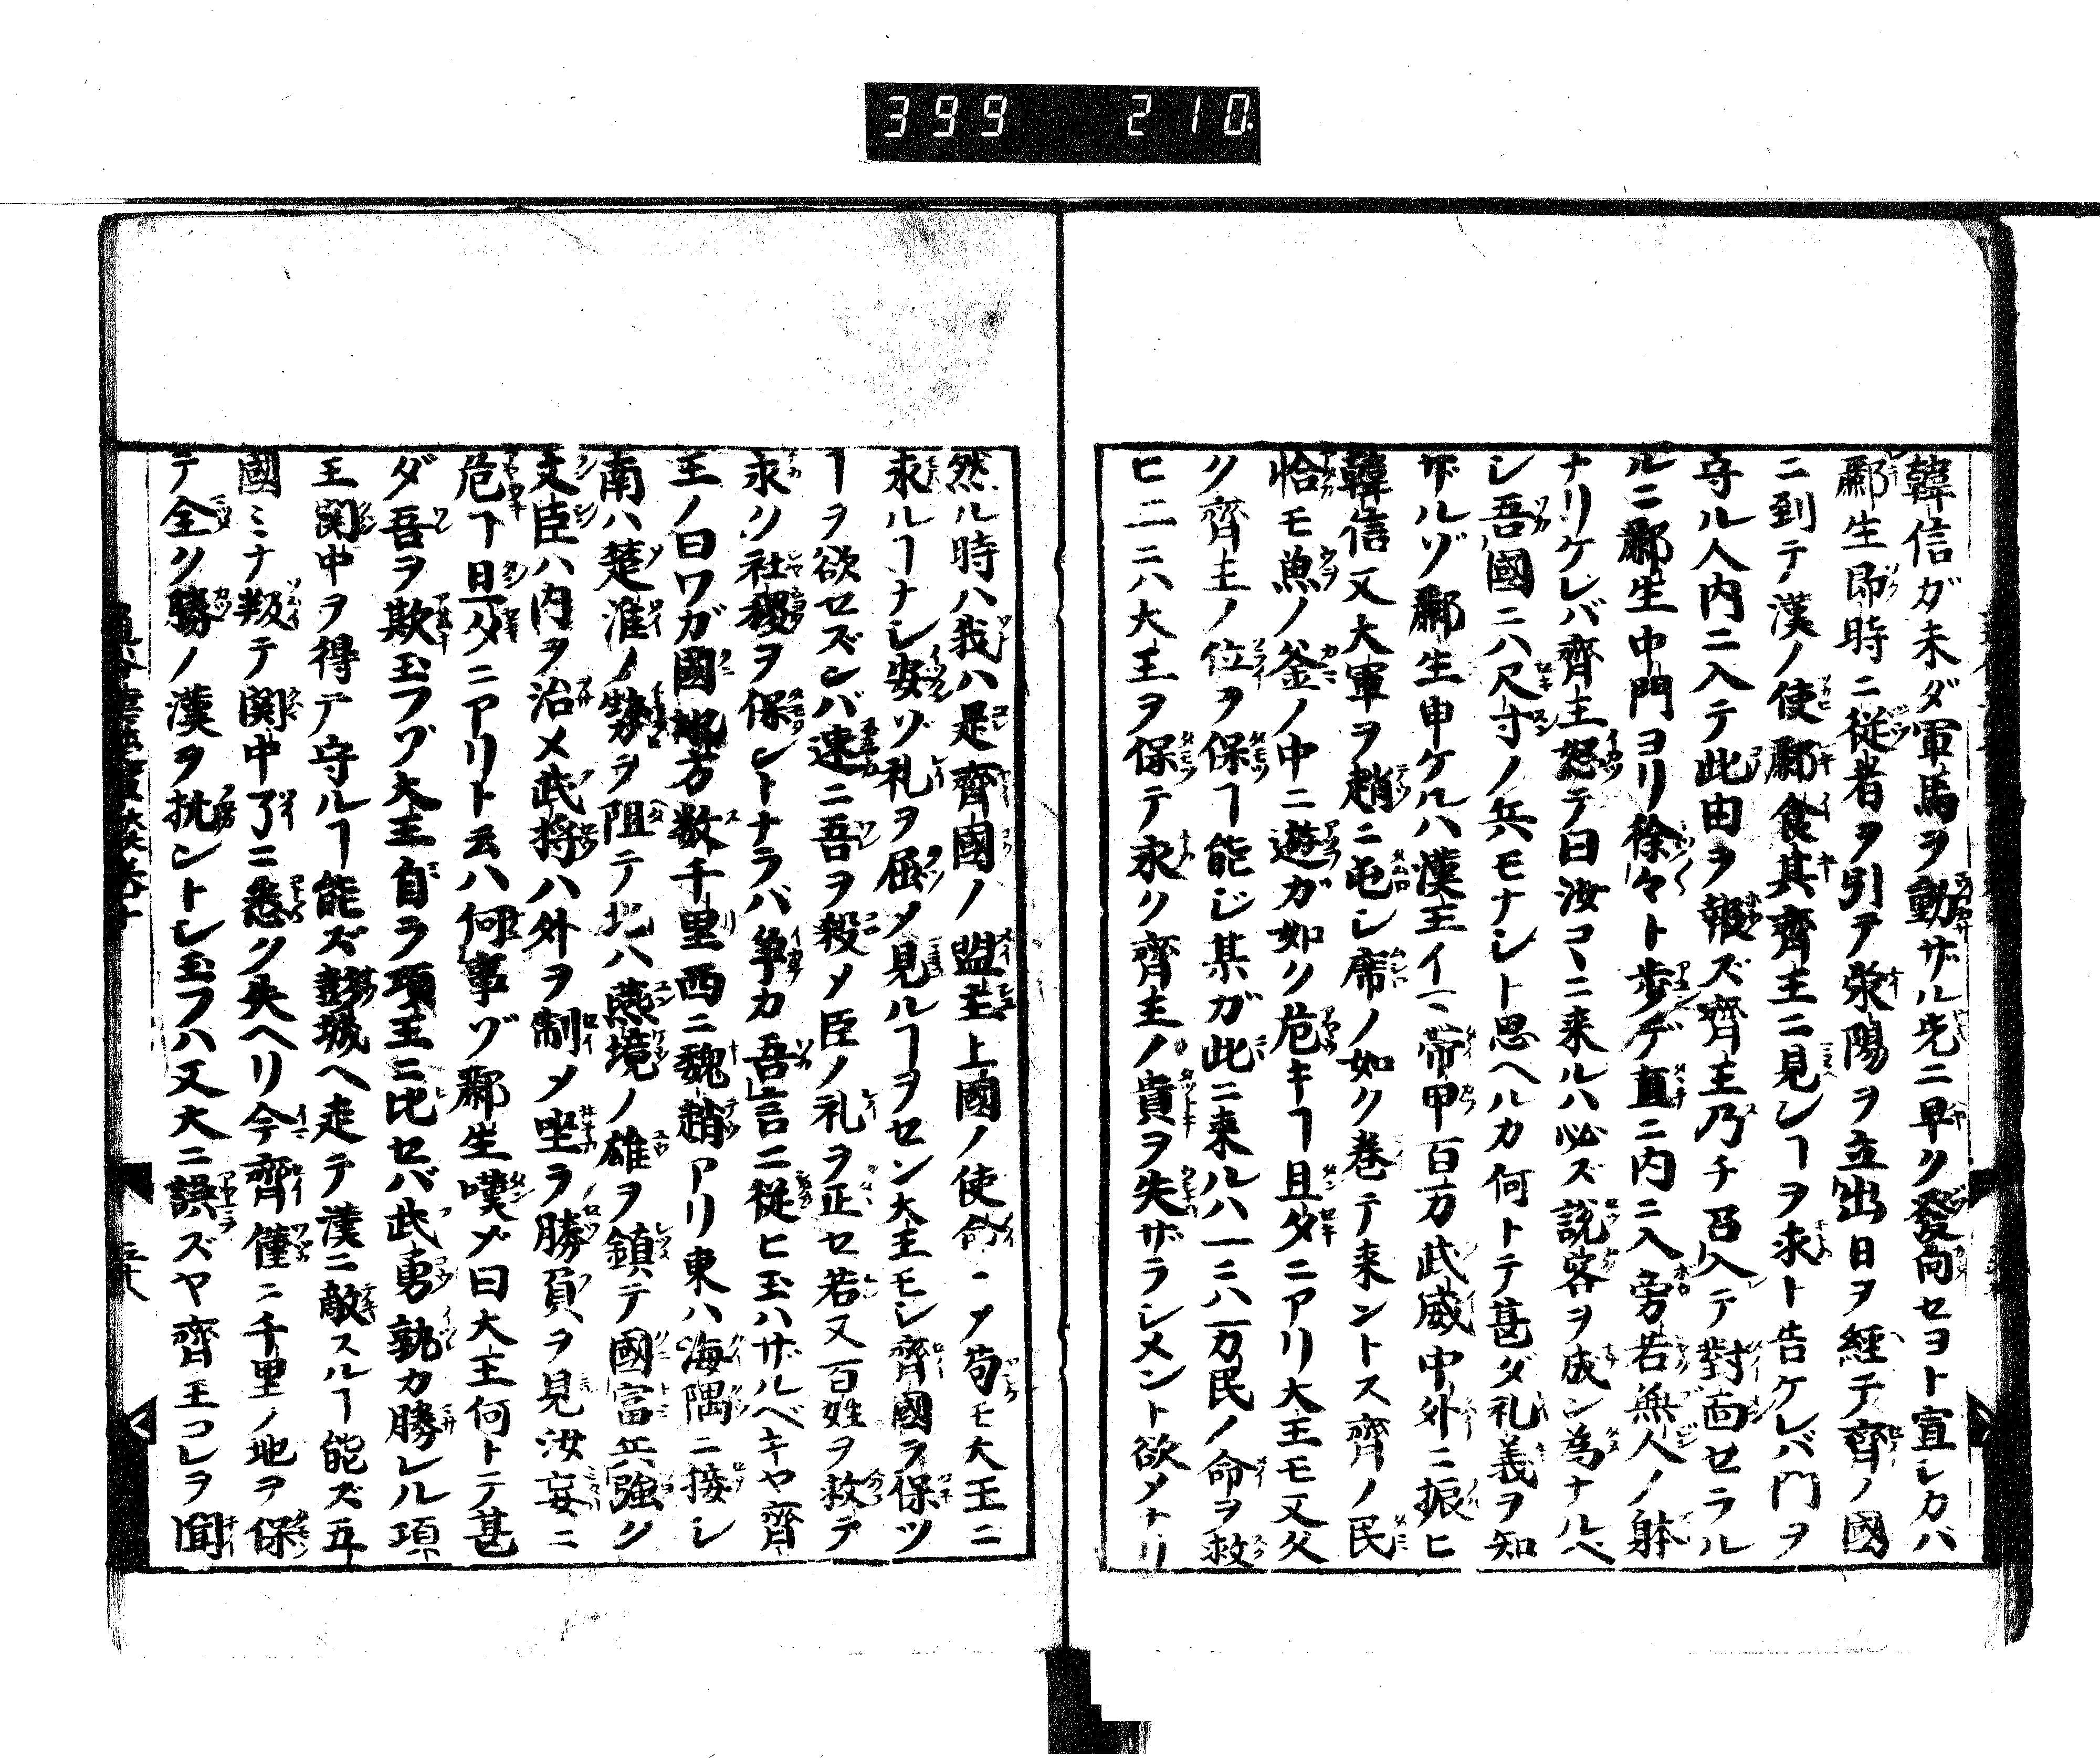 399 210.
韓信ガ未ダ軍馬ヲ動サザル先ニ早ク發向セヨト宣シカバ
酈生即時ニ従者ヲ引テ滎陽ヲ立出日ヲ經テ齊ノ國
ニ到テ漢ノ使酈食其齊王ニ見シヿヲ求ト告ケレバ門ヲ
守ル人内ニ入テ此由ヲ報ズ齊王乃チ召入テ對面セラル
ルニ酈生中門ヨリ徐々ト歩デ直ニ内ニ入旁若無人ノ躰
ナリケレバ齊王怒テ曰汝コヽニ来ルハ必ズ説客ヲ成ン為ナルベ
シ吾國ニハ尺寸ノ兵モナシト思ヘルカ何トテ甚ダ礼義ヲ知
ザルゾ酈生申ケルハ漢王イマ帶甲百万武威中外ニ振ヒ
韓信又大軍ヲ趙ニ屯シ席ノ如ク巻テ来ントス齊ノ民
恰モ魚ノ釜ノ中ニ遊ガ如ク危キヿ旦夕ニアリ大王モ又久
ク齊王ノ位ヲ保ヿ能ジ某ガ此ニ来ルハ一ニハ万民ノ命ヲ救
ヒ二ニハ大王ヲ保テ永ク齊王ノ貴ヲ失ザラシメント欲メナリ
然ル時ハ我ハ是齊國ノ盟主上國ノ使命ニメ苟モ大王ニ
求ルヿナシ安ゾ礼ヲ屈メ見ルヿヲセン大王モシ齊國ヲ保ツ
ヿヲ欲セズンバ速ニ吾ヲ殺メ臣ノ礼ヲ正セ若又百姓ヲ救テ
永ク社稷ヲ保ントナラバ争カ吾言ニ従ヒ玉ハザルベキヤ齊
王ノ曰ワガ國地方数千里西ニ魏趙アリ東ハ海隅ニ接シ
南ハ楚淮ノ勢ヲ阻テ北ハ燕境ノ雄ヲ鎮テ國富兵強ク
文臣ハ内ヲ治メ武将ハ外ヲ制メ坐ラ勝負ヲ見汝妄ニ
危ヿ旦夕ニアリト云ハ何事ゾ酈生嘆メ曰大王何トテ甚
ダ吾ヲ欺玉フゾ大王自ラ項王ニ比セバ武勇孰カ勝レル項
王関中ヲ得テ守ルヿ能ズ彭城ヘ走テ漢ニ敵スルヿ能ズ五
國ミナ叛テ関中了ニ悉ク失ヘリ今齊僅ニ千里ノ地ヲ保
テ全ク勝ノ漢ヲ抗ントシ玉フハ又大ニ誤ズヤ齊王コレヲ聞